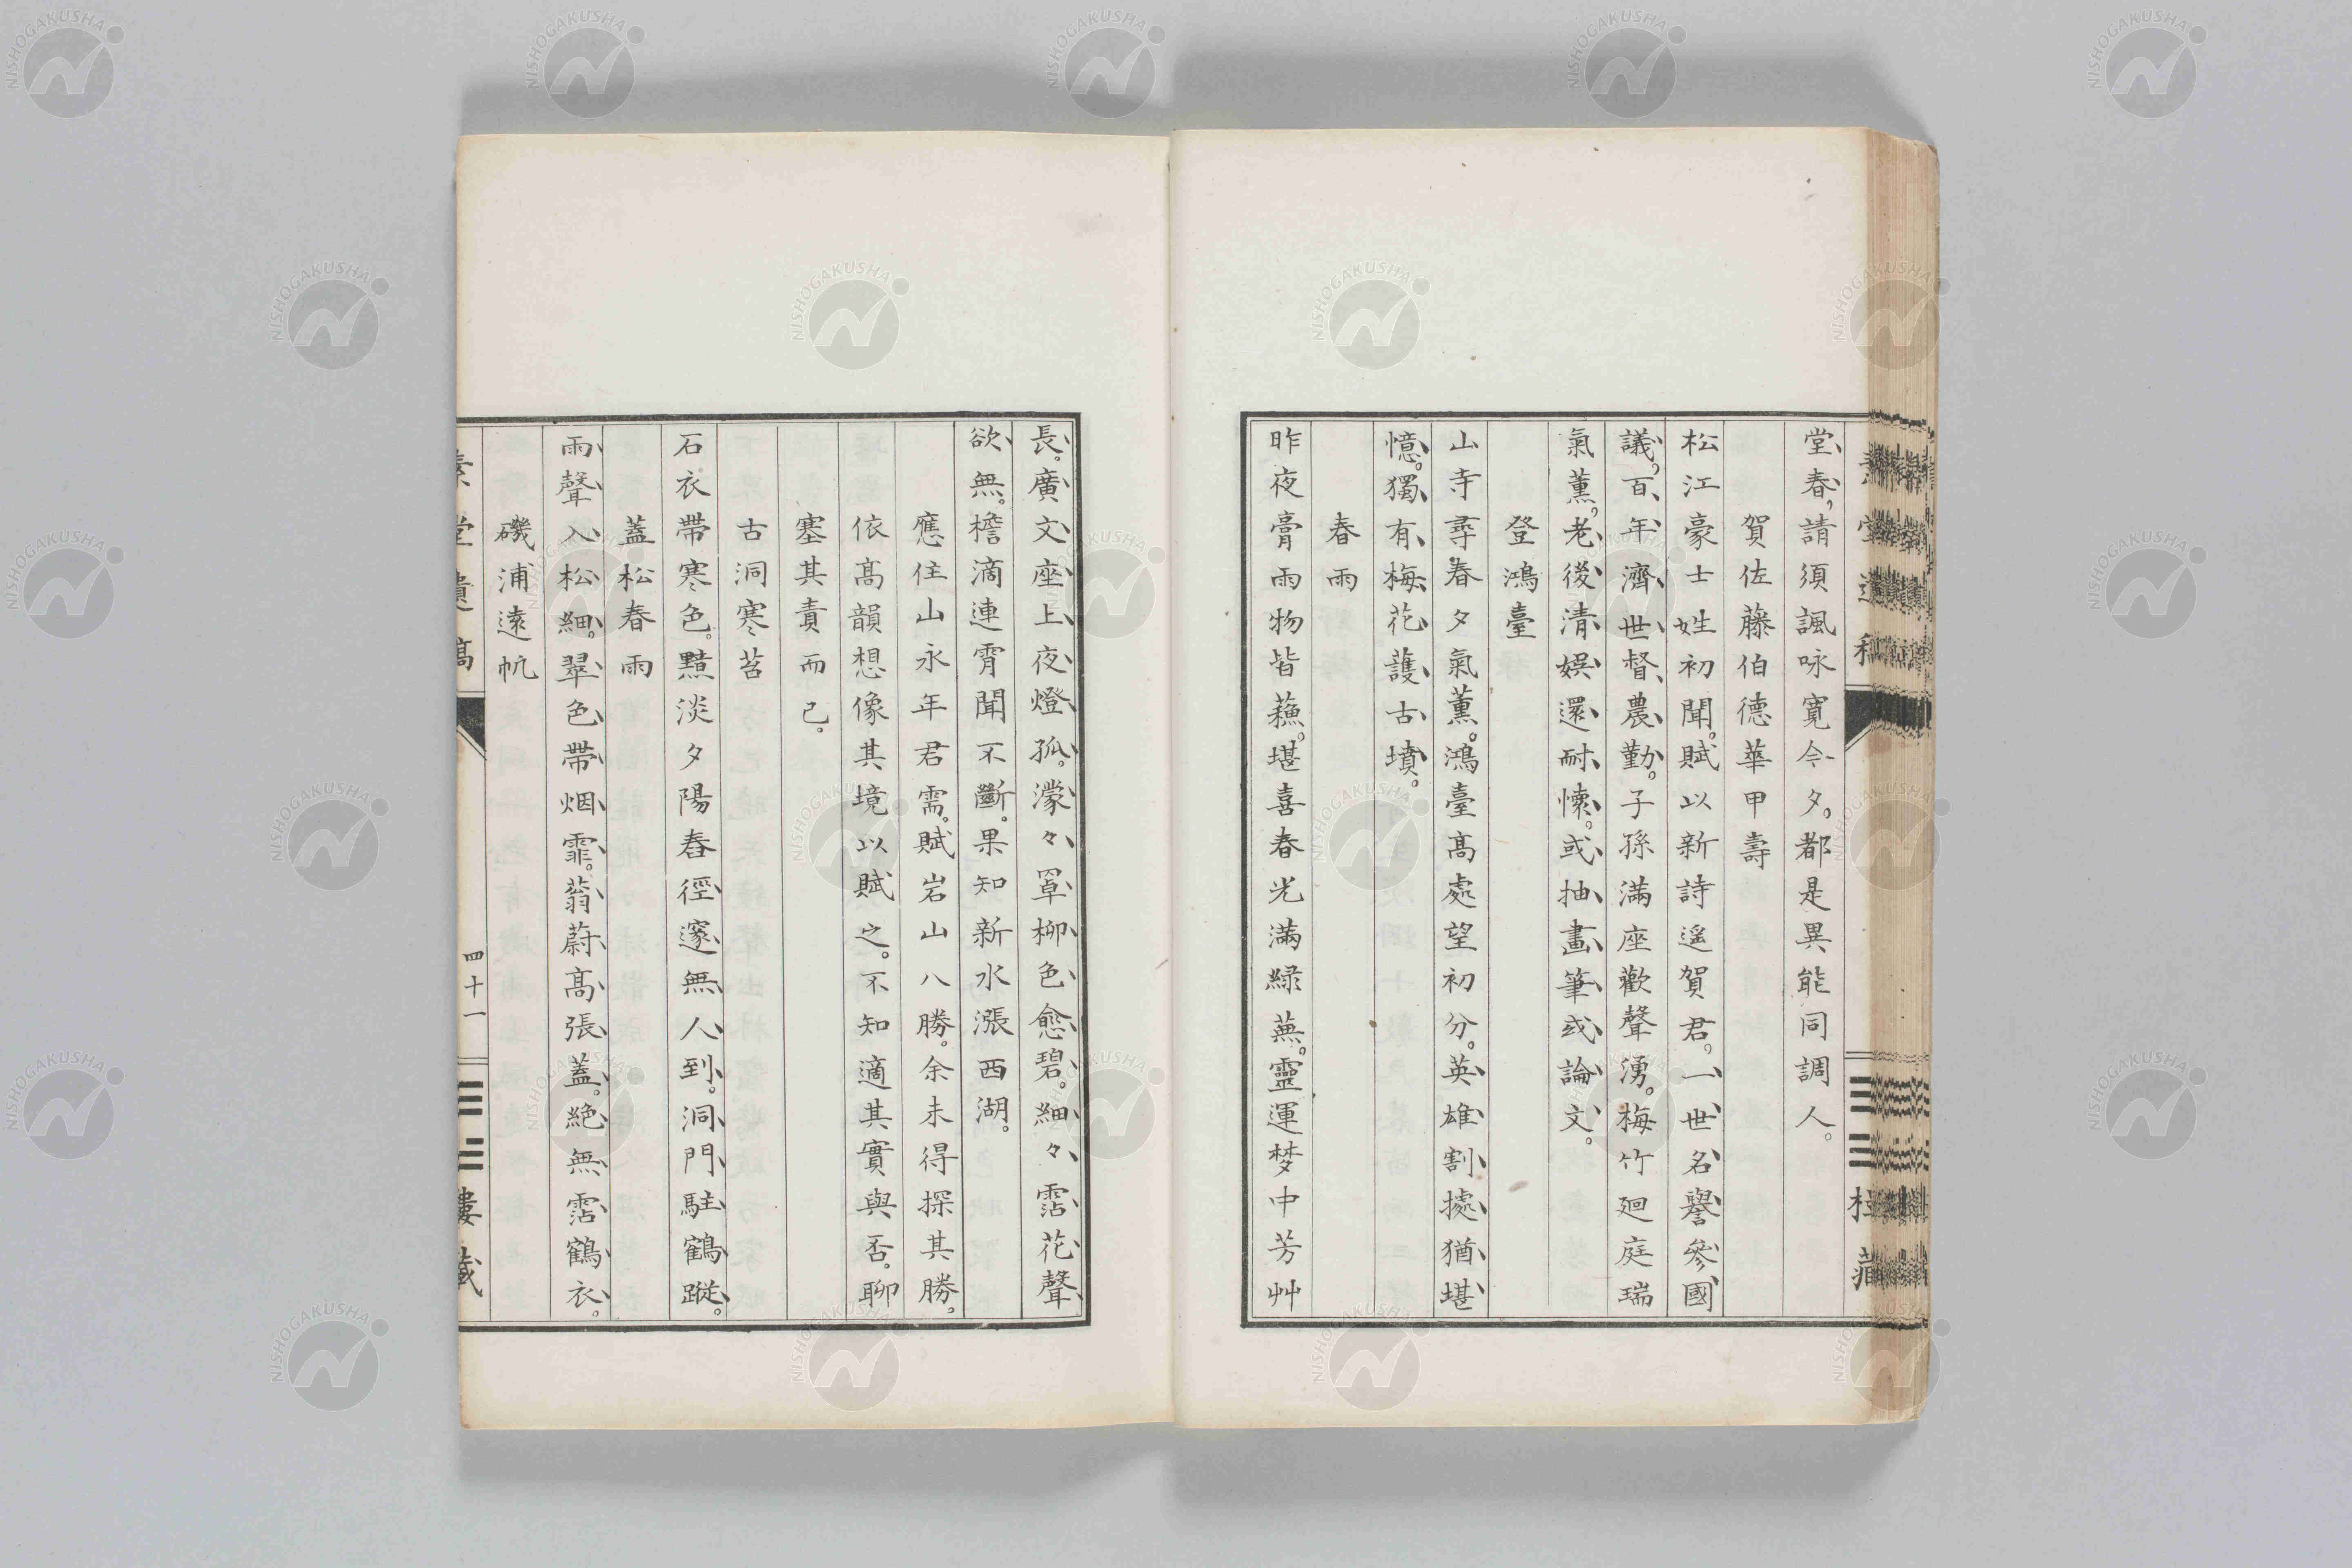 堂春，請須諷咏寬今夕。都是異能同調人。
賀佐藤伯德華甲壽
松江豪士姓初聞。賦以新詩遥賀君。一世名譽參國
議，百年濟世督農勤。子孫滿座歡聲湧。梅竹廻庭瑞
氣薫。老後清娯還耐懷。或抽畫筆或論文。
登鴻臺
山寺尋春夕氣薫。鴻臺高處望初分。英雄割據猶堪
憶。獨有梅花護古墳。
春雨
昨夜膏雨物皆蘓。堪喜春光滿緑蕪。靈運梦中芳艸
長。廣文座上夜燈孤。濛々罩柳色愈碧。細々霑花聲
欲無。檐滴連霄聞不斷。果知新水漲西湖。
應住山永年君需。賦岩山八勝。余未得探其勝。
依高韻想像其境以賦之。不知適其實與否。聊
塞其責而已。
古洞寒苔
石衣帶寒色。黯淡夕陽舂徑邃無人到。洞門駐鶴蹤。
蓋松春雨
雨聲入松細。翠色帶烟霏。蓊蔚高張蓋。絶無霑鶴衣。
磯浦遠帆
素堂遺稿
四十一
三三樓藏
NISHOGAKUSHA